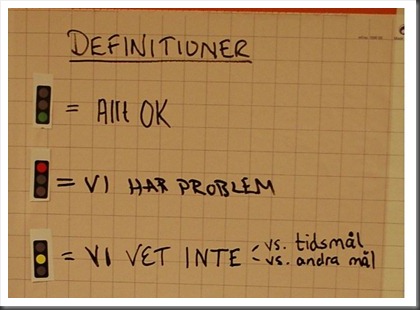 DEFINITIONER
= Allt OK
= VI HAR PROBLEM
= VI VET INTE < vs. tidsmål
vs. andra mål